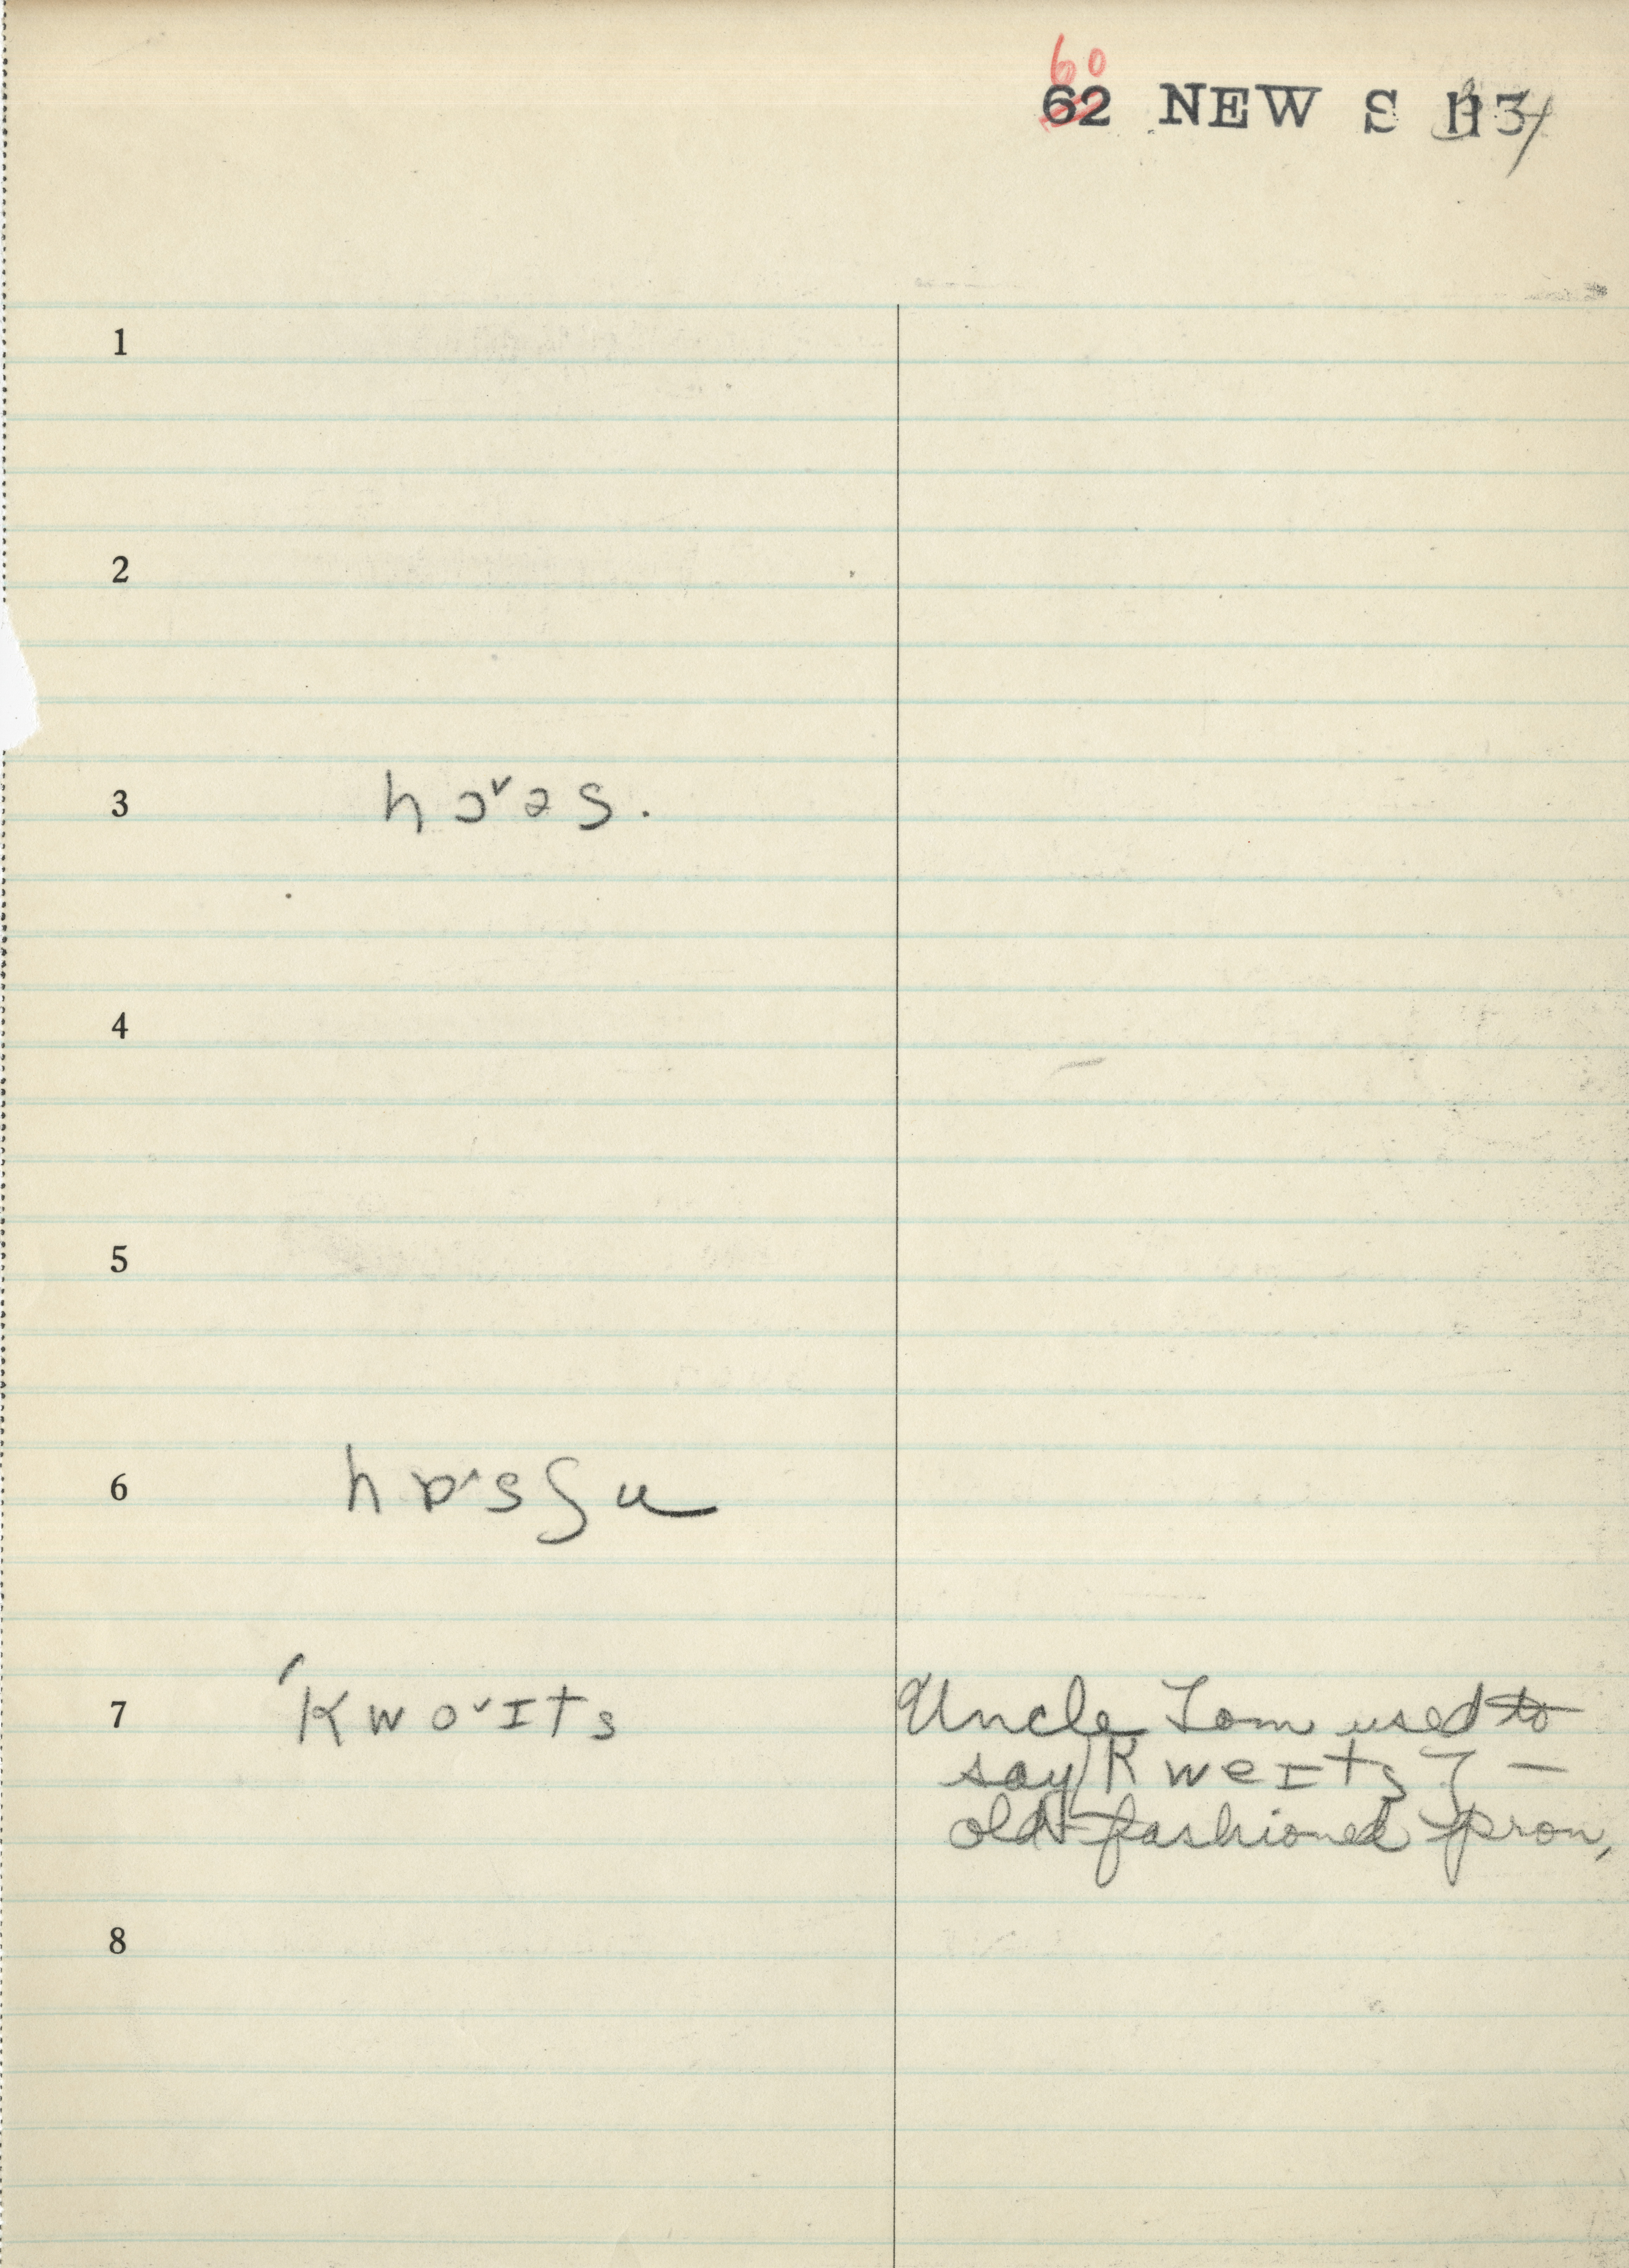 60
62 NEW S
1
2
3 hɔ˅əs.
4
5
6 hɒ˄sʃu
7 ′kwo˅ɪts Uncle Tom used to
say kweɪts —
old-fashioned pron.
8